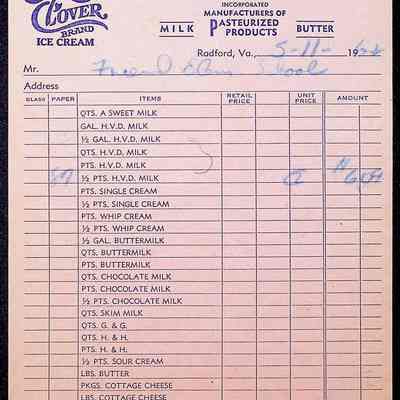 CLOVER
BRAND
ICE CREAM
INCORPORATED
MANUFACTURERS OF
MILK PASTEURIZED PRODUCTS BUTTER
Radford, Va., 5-11- 19
Mr. Elem School
Address
GLASS PAPER ITEMS RETAIL PRICE UNIT PRICE AMOUNT
QTS. A SWEET MILK
GAL. H.V.D. MILK
½ GAL. H.V.D. MILK
QTS. H.V.D. MILK
PTS. H.V.D. MILK
87 ½ PTS. H.V.D. MILK
PTS. SINGLE CREAM
½ PTS. SINGLE CREAM
PTS. WHIP CREAM
½ PTS. WHIP CREAM
½ GAL. BUTTERMILK
QTS. BUTTERMILK
PTS. BUTTERMILK
QTS. CHOCOLATE MILK
PTS. CHOCOLATE MILK
½ PTS. CHOCOLATE MILK
QTS. SKIM MILK
QTS. G. & G.
QTS. H. & H.
PTS. H. & H.
½ PTS. SOUR CREAM
LBS. BUTTER
PKGS. COTTAGE CHEESE
LBS. COTTAGE CHEESE